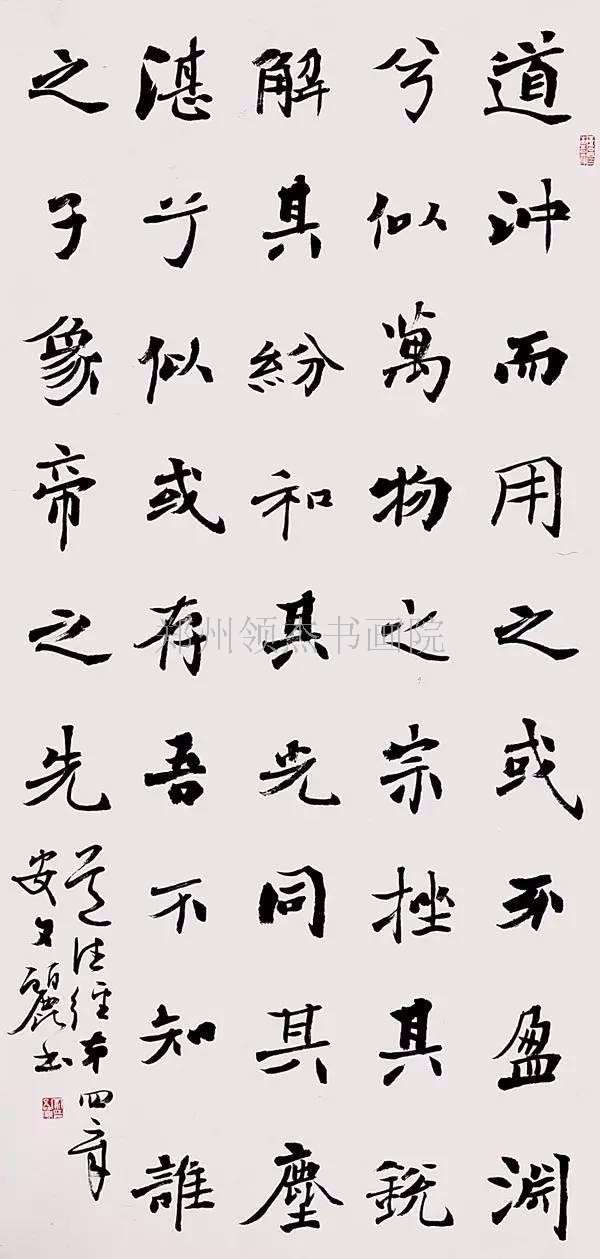 道沖而用之或不盈淵
兮似萬物之宗挫其銳
解其紛和其光同其塵
湛兮似或存吾不知誰
之子象帝之先
道德經第四章
安文麗書
郑州领杰书画院